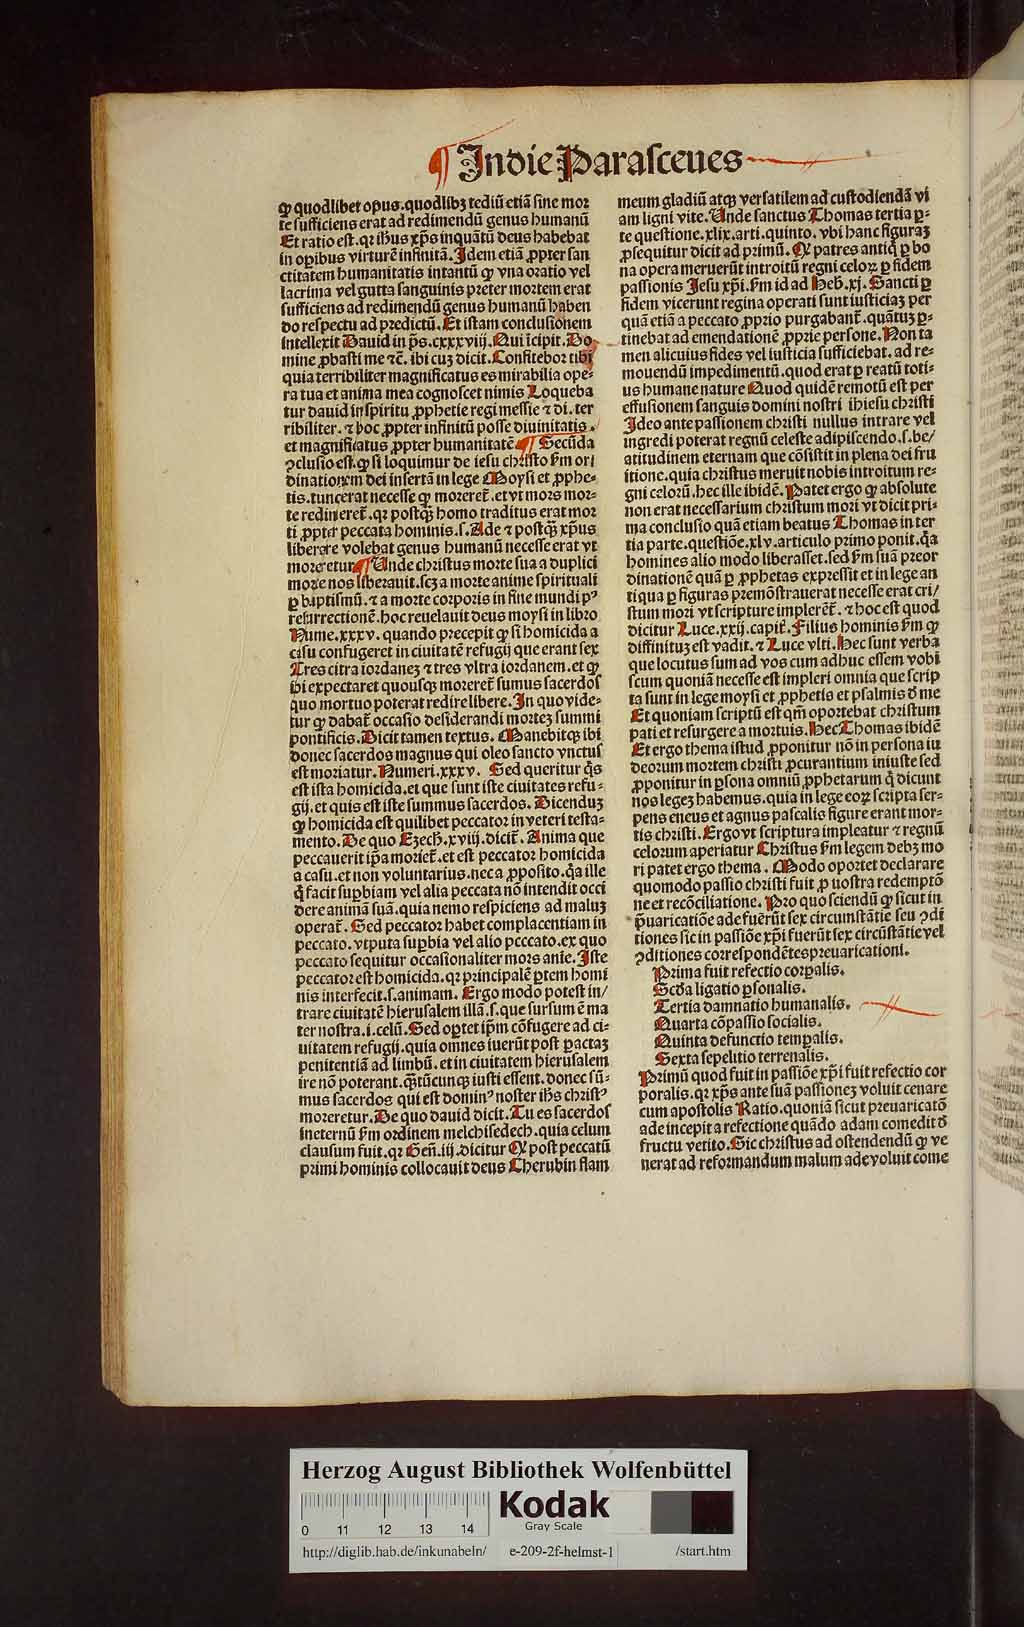 ¶ Indie Parasceues
ꝙ quodlibet opus.quodlibꝫ tediū etiā sine mor
te sufficiens erat ad redimendū genus humanū
Et ratio est.qꝛ ih̄us xp̄s inquātū deus habebat
in opibus virturē infinitā.Idem etiā ꝓpter san
ctitatem humanitatis intantū ꝙ vna oratio vel
lacrima vel gutta sanguinis preter mortem erat
sufficiens ad redimendū genus humanū haben
do respectu ad predictū.Et istam conclusionem
intellexit Dauid in ps̄.cxxxviij.Qui īcipit.Do
mine ꝓbasti me ⁊c̄. ibi cuꝫ dicit.Confitebor tibi
quia terribiliter magnificatus es mirabilia ope-
ra tua et anima mea cognoscet nimis Loqueba
tur dauid in spiritu ꝓphetie regi messie ⁊ di. ter
ribiliter. ⁊ hoc ꝓpter infinitū posse diuinitatis.
et magnificatus ꝓpter humanitatē.¶ Secūda
ꝯclusio est.ꝙ si loquimur de iesu christo ẜm ori
dinationem dei insertā in lege Moysi et ꝓphe-
tis.tunc erat necesse ꝙ morereť.et vt mors mor-
te redimereť.qꝛ postꝙ̄ homo traditus erat mor
ti ꝓpter peccata hominis.s.Ade ⁊ postꝙ̄ xp̄us
liberare volebat genus humanū necesse erat vt
moreretur¶ Unde christus morte sua a duplici
morte nos liberauit.scꝫ a morte anime spirituali
ꝑ baptismū.⁊ a morte corporis in fine mundi pꝰ
resurrectionē.hoc reuelauit deus moysi in libro
Nume.xxxv. quando precepit ꝙ si homicida a
casu confugeret in ciuitatē refugij que erant sex
Tres citra iordaneꝫ ⁊ tres vltra iordanem.et ꝙ
ibi expectaret quousqꝫ morereť sumus sacerdos
quo mortuo poterat redire libere.In quo vide-
tur ꝙ dabať occasio desiderandi morteꝫ summi
pontificis.Dicit tamen textus. Manebitqꝫ ibi
donec sacerdos magnus qui oleo sancto vnctus
est moriatur.Numeri.xxxv. Sed queritur q̄s
est ista homicida.et que sunt iste ciuitates refu-
gij.et quis est iste summus sacerdos. Dicenduꝫ
ꝙ homicida est quilibet peccator in veteri testa-
mento.De quo Ezech.xviij.dicit̄. Anima que
peccauerit ip̄a morieť.et est peccator homicida
a casu.et non voluntarius.nec a ꝓposito.q̄a ille
q̄ facit supbiam vel alia peccata nō intendit occi
dere animā suā.quia nemo respiciens ad maluꝫ
operať. Sed peccator habet complacentiam in
peccato.vtputa supbia vel alio peccato.ex quo
peccato sequitur occasionaliter mors anie.Iste
peccator est homicida.qꝛ principalē ꝑtem homi
nis interfecit.s.animam. Ergo modo potest in/
trare ciuitatē hierusalem illā.s.que sursum ē ma
ter nostra.i.celū.Sed oꝑtet ip̄m cōfugere ad ci-
uitatem refugij.quia omnes iuerūt post ꝑactaꝫ
penitentiā ad limbū.et in ciuitatem hierusalem
ire nō poterant.ꝙ̄tūcunqꝫ iusti essent.donec sū-
mus sacerdos qui est dominꝰ noster ih̄s christꝰ
moreretur.De quo dauid dicit.Tu es sacerdos
in eternū ẜm ordinem melchisedech.quia celum
clausum fuit.qꝛ Gen̄.iij.dicitur Qꝛ post peccatū
primi hominis collocauit deus Cherubin flam
meum gladiū atqꝫ versatilem ad custodiendā vi
am ligni vite.Unde sanctus Thomas tertia ꝑ-
te questione.xlix.arti.quinto. vbi hanc figuraꝫ
ꝓsequitur dicit ad primū.Qꝛ patres antiq̄ ꝑ bo
na opera meruerūt introitū regni celoꝝ ꝑ fidem
passionis Jesu xp̄i.ẜm id ad Heb̄.xj. Sancti ꝑ
fidem vicerunt regina operati sunt iusticiaꝫ per
quā etiā a peccato ꝓprio purgabant̄.quātuꝫ ꝑ-
tinebat ad emendationē ꝓprie persone.Non ta
men alicuius fides vel iusticia sufficiebat. ad re-
mouendū impedimentū.quod erat ꝑ reatū toti-
us humane nature Quod quidē remotū est per
effusionem sanguis domini nostri ihiesu christi
Ideo ante passionem christi nullus intrare vel
ingredi poterat regnū celeste adipiscendo.s.be/
atitudinem eternam que cōsistit in plena dei fru
itione.quia christus meruit nobis introitum re-
gni celorū.hec ille ibidē.Patet ergo ꝙ absolute
non erat necessarium christum mori vt dicit pri-
ma conclusio quā etiam beatus Thomas in ter
tia parte.questiōe.xlv.articulo primo ponit.q̄a
homines alio modo liberasset.sed ẜm suā preor
dinationē quā ꝑ ꝓphetas expressit et in lege an
tiqua ꝑ figuras premōstrauerat necesse erat cri/
stum mori vt scripture implerēť. ⁊ hoc est quod
dicitur Luce.xxij.capiť. Filius hominis ẜm ꝙ
diffinituꝫ est vadit.⁊ Luce vlti.Hec sunt verba
que locutus sum ad vos cum adhuc essem vobi
scum quoniā necesse est impleri omnia que scrip
ta sunt in lege moysi et ꝓphetis et psalmis ō me
Et quoniam scriptū est qm̄ oportebat christum
pati et resurgere a mortuis.Hec Thomas ibidē
Et ergo thema istud ꝓponitur nō in persona iu
deorum mortem christi ꝓcurantium iniuste sed
ꝓponitur in ꝑsona omniū ꝓphetarum q̄ dicunt
nos legeꝫ habemus.quia in lege eoꝝ scripta ser-
pens eneus et agnus pascalis figure erant mor-
tis christi.Ergo vt scriptura impleatur ⁊ regnū
celorum aperiatur Christus ẜm legem debꝫ mo
ri patet ergo thema. Modo oportet declarare
quomodo passio christi fuit ꝓ uostra redemptō
ne et recōciliatione.Pro quo sciendū ꝙ sicut in
p̄uaricatiōe ade fuerūt sex circumstātie seu ꝯdi
tiones sic in passiōe xp̄i fuerūt sex circūstātie vel
ꝯditiones correspondētes preuaricationi.
Prima fuit refectio corꝑalis.
Scd̄a ligatio ꝑsonalis.
Tertia damnatio humanalis.
Quarta cōpassio socialis.
Quinta defunctio temꝑalis.
Sexta sepelitio terrenalis.
Primū quod fuit in passiōe xp̄i fuit refectio cor
poralis.qꝛ xp̄s ante suā passioneꝫ voluit cenare
cum apostolis Ratio.quoniā sicut preuaricatō
ade incepit a refectione quādo adam comedit ō
fructu vetito.Sic christus ad ostendendū ꝙ ve
nerat ad reformandum malum ade voluit come
Herzog August Bibliothek Wolfenbüttel
0 11 12 13 14
Kodak
Gray Scale
http://diglib.hab.de/inkunabeln/ e-209-2f-helmst-1 /start.htm